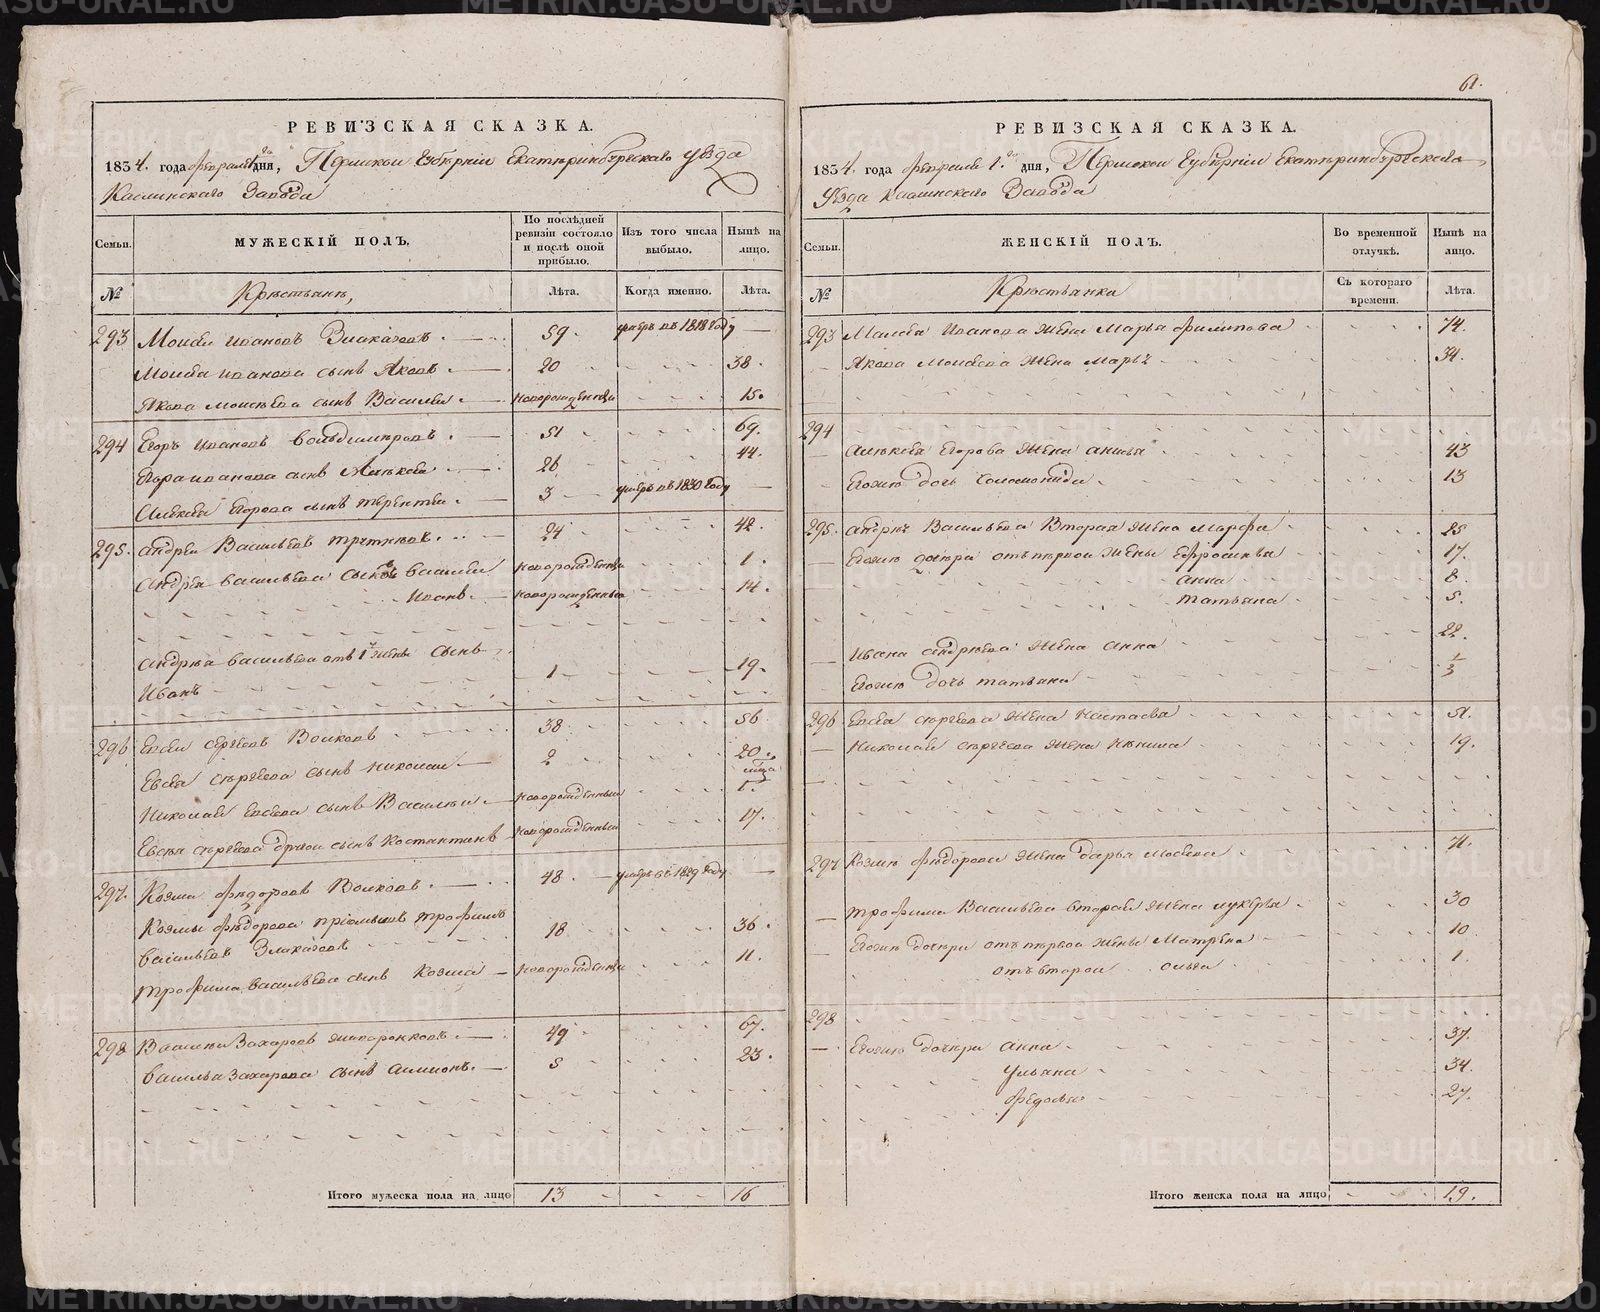 61.
РЕВИЗСКАЯ СКАЗКА.
1834. года февраля 1го дня, Пермской Губернии Екатеринбургскаго уезда
Каслинскаго Завода
Семьи.
МУЖЕСКІЙ ПОЛЪ.
По послѣдней ревизіи состояло и послѣ оной прибыло.
Изъ того числа выбыло.
Нынѣ на лицо.
№
Крѣстьянѣ,
Лѣта.
Когда именно.
Лѣта.
293 Моисей Ивановъ 59 умеръ въ 1818 году
Моисея Иванова сынъ Яковъ 20 38.
Якова Моисѣева сынъ Василей новорожденный 15.
294 Егоръ Ивановъ 51 69.
Егора Иванова сынъ Алѣксей 26 44.
Алексея Егорова сынъ Терентей 3 умеръ въ 1830 году
295. Андрей Васильевъ 24 42.
Андрея Васильева сынъ Василей новорожденный 1.
Иванъ новорожденный 14.
Андрея Васильева отъ 1й жены сынъ
Иванъ 1 19.
296 Евсей Сергѣевъ Волковъ 38 56
Евсея Сергѣева сынъ Николай 2 20.
Николая Евсеева сынъ Василей новорожденный 1.
Евсея Сергѣева другой сынъ Костантинъ новорожденный 17.
297. Козма Фѣдоровъ Волковъ 48 умеръ въ 1829 году
Козмы Фѣдорова пріемышъ Трофимъ
Васильевъ Злаказовъ 18 36.
Трофима Васильева сынъ Козма новорожденный 11.
298 Василей Захаровъ 49 67.
Василья Захарова сынъ 5 23.
Итого мужеска пола на лицо 13 16
РЕВИЗСКАЯ СКАЗКА.
1834 года февраля 1го дня, Пермской Губерніи Екатеринбургскаго
Уезда Каслинскаго Завода
Семьи.
ЖЕНСКІЙ ПОЛЪ.
Во временной отлучкѣ.
Нынѣ на лицо.
№
Крѣстьянка
Съ котораго времени.
Лѣта.
293 Моисея Иванова жена Марья Филипова 74.
Якова Моисеева жена Марья 34.
294
Алѣксея Егорова жена Анисья 43
Егожъ дочь Соломонида 13
295. Андрея Васильева вторая жена Марфа 25
Егожъ дочери отъ первой жены Ефросинья 17.
Анна 8.
Татьяна 5.
Ивана Андреева жена Анна 22.
Егожъ дочь Татьяна 1/3
296 Евсея Сергѣева жена Настасья 51.
Николая жена 19.
297 Козмы Фѣдорова жена Дарья 71.
Трофима Васильева вторая жена Лукерья 30
Егожъ дочери отъ первой жены Матрена 10
отъ второй Ольга 1.
298
Егожъ дочери Анна 37.
Ульяна 34.
Федосья 27.
Итого женска пола на лицо 19.
METRIKI.GASO-URAL.RU